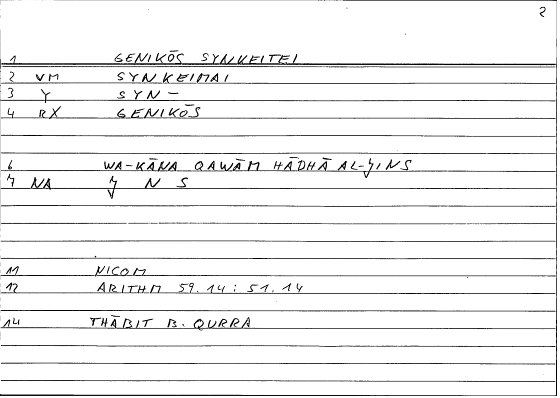 2
1 GENIKŌS SYNKEITEI
2 VM SYNKEIMAI
3 Y SYN-
4 RX GENIKŌS
6 WA-KĀNA QAWĀM HĀDHĀ AL-ǦINS
7 NA Ǧ N S
11 NICOM
12 ARITHM 59.14 : 51.14
14 THĀBIT B. QURRA